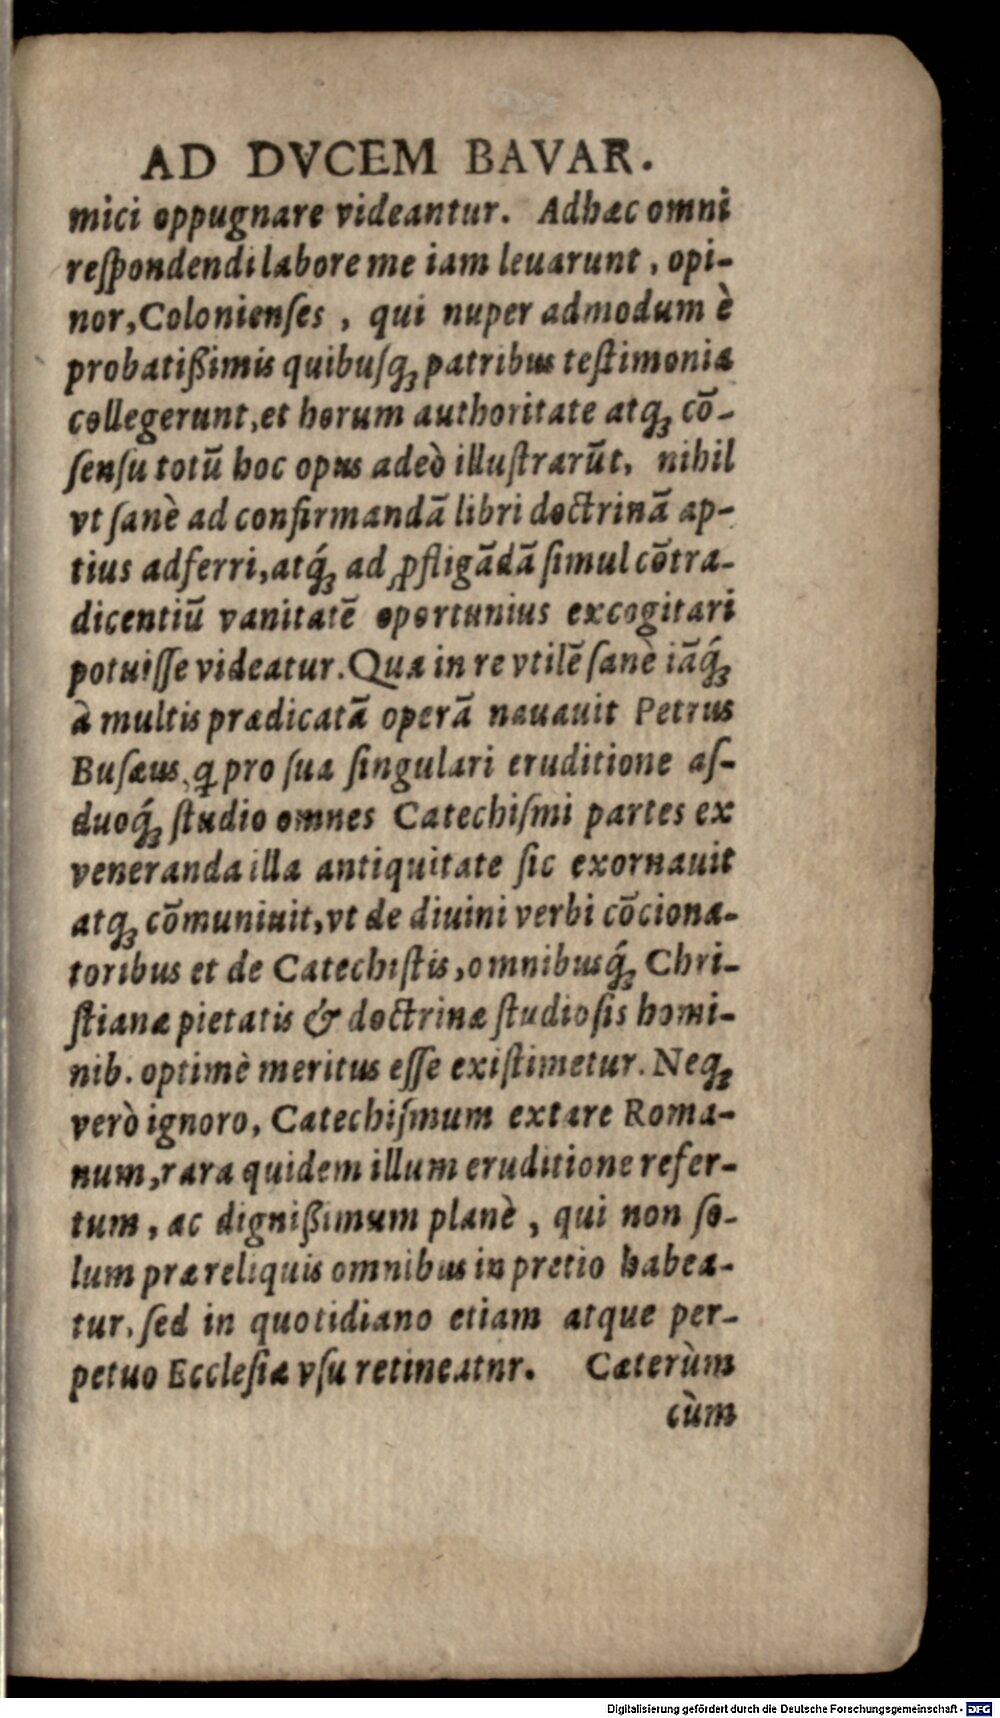 AD DVCEM BAVAR.
mici oppugnare videantur. Adhæc omni
reſpondendi labore me iam leuarunt, opi-
nor, Colonienſes, qui nuper admodum è
probatißimis quibuſq́ꝫ patribus teſtimonia
collegerunt, et horum authoritate atqꝫ cō-
ſenſu totū hoc opus adeò illuſtrarūt, nihil
vt ſanè ad confirmandā libri doctrinā ap-
tius adferri, atq́ꝫ ad ꝓfligādā ſimul cōtra-
dicentiū vanitatē oportunius excogitari
potuiſſe videatur. Qua in re vtilē ſanè iāq́ꝫ
à multis prædicatā operā nauauit Petrus
Buſæus, ꝗ pro ſua ſingulari eruditione aſ-
duoq́ꝫ ſtudio omnes Catechiſmi partes ex
veneranda illa antiquitate ſic exornauit
atqꝫ cōmuniuit, vt de diuini verbi cōciona-
toribus et de Catechiſtis, omnibusq́ꝫ Chri-
ſtianæ pietatis & doctrinæ ſtudioſis homi-
nib. optimè meritus eſſe exiſtimetur. Neqꝫ
verò ignoro, Catechiſmum extare Roma-
num, rara quidem illum eruditione refer-
tum, ac dignißimum planè, qui non ſo-
lum præ reliquis omnibus in pretio habea-
tur, ſed in quotidiano etiam atque per-
petuo Eccleſiæ vſu retineatnr. Cæterùm
cùm
Digitalisierung gefördert durch die Deutsche Forschungsgemeinschaft - DFG